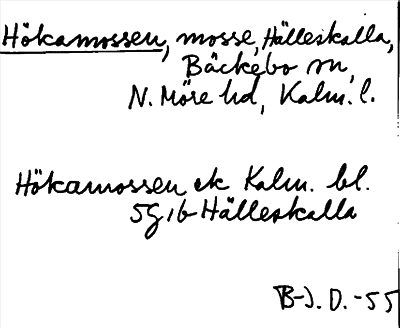 Hökamossen, mosse, Hälleskalla,
Bäckebo sn,
N. Möre hd, Kalm. l.
Hökamossen ek Kalm. bl.
5g, b Hälleskalla
B-J. O. -55